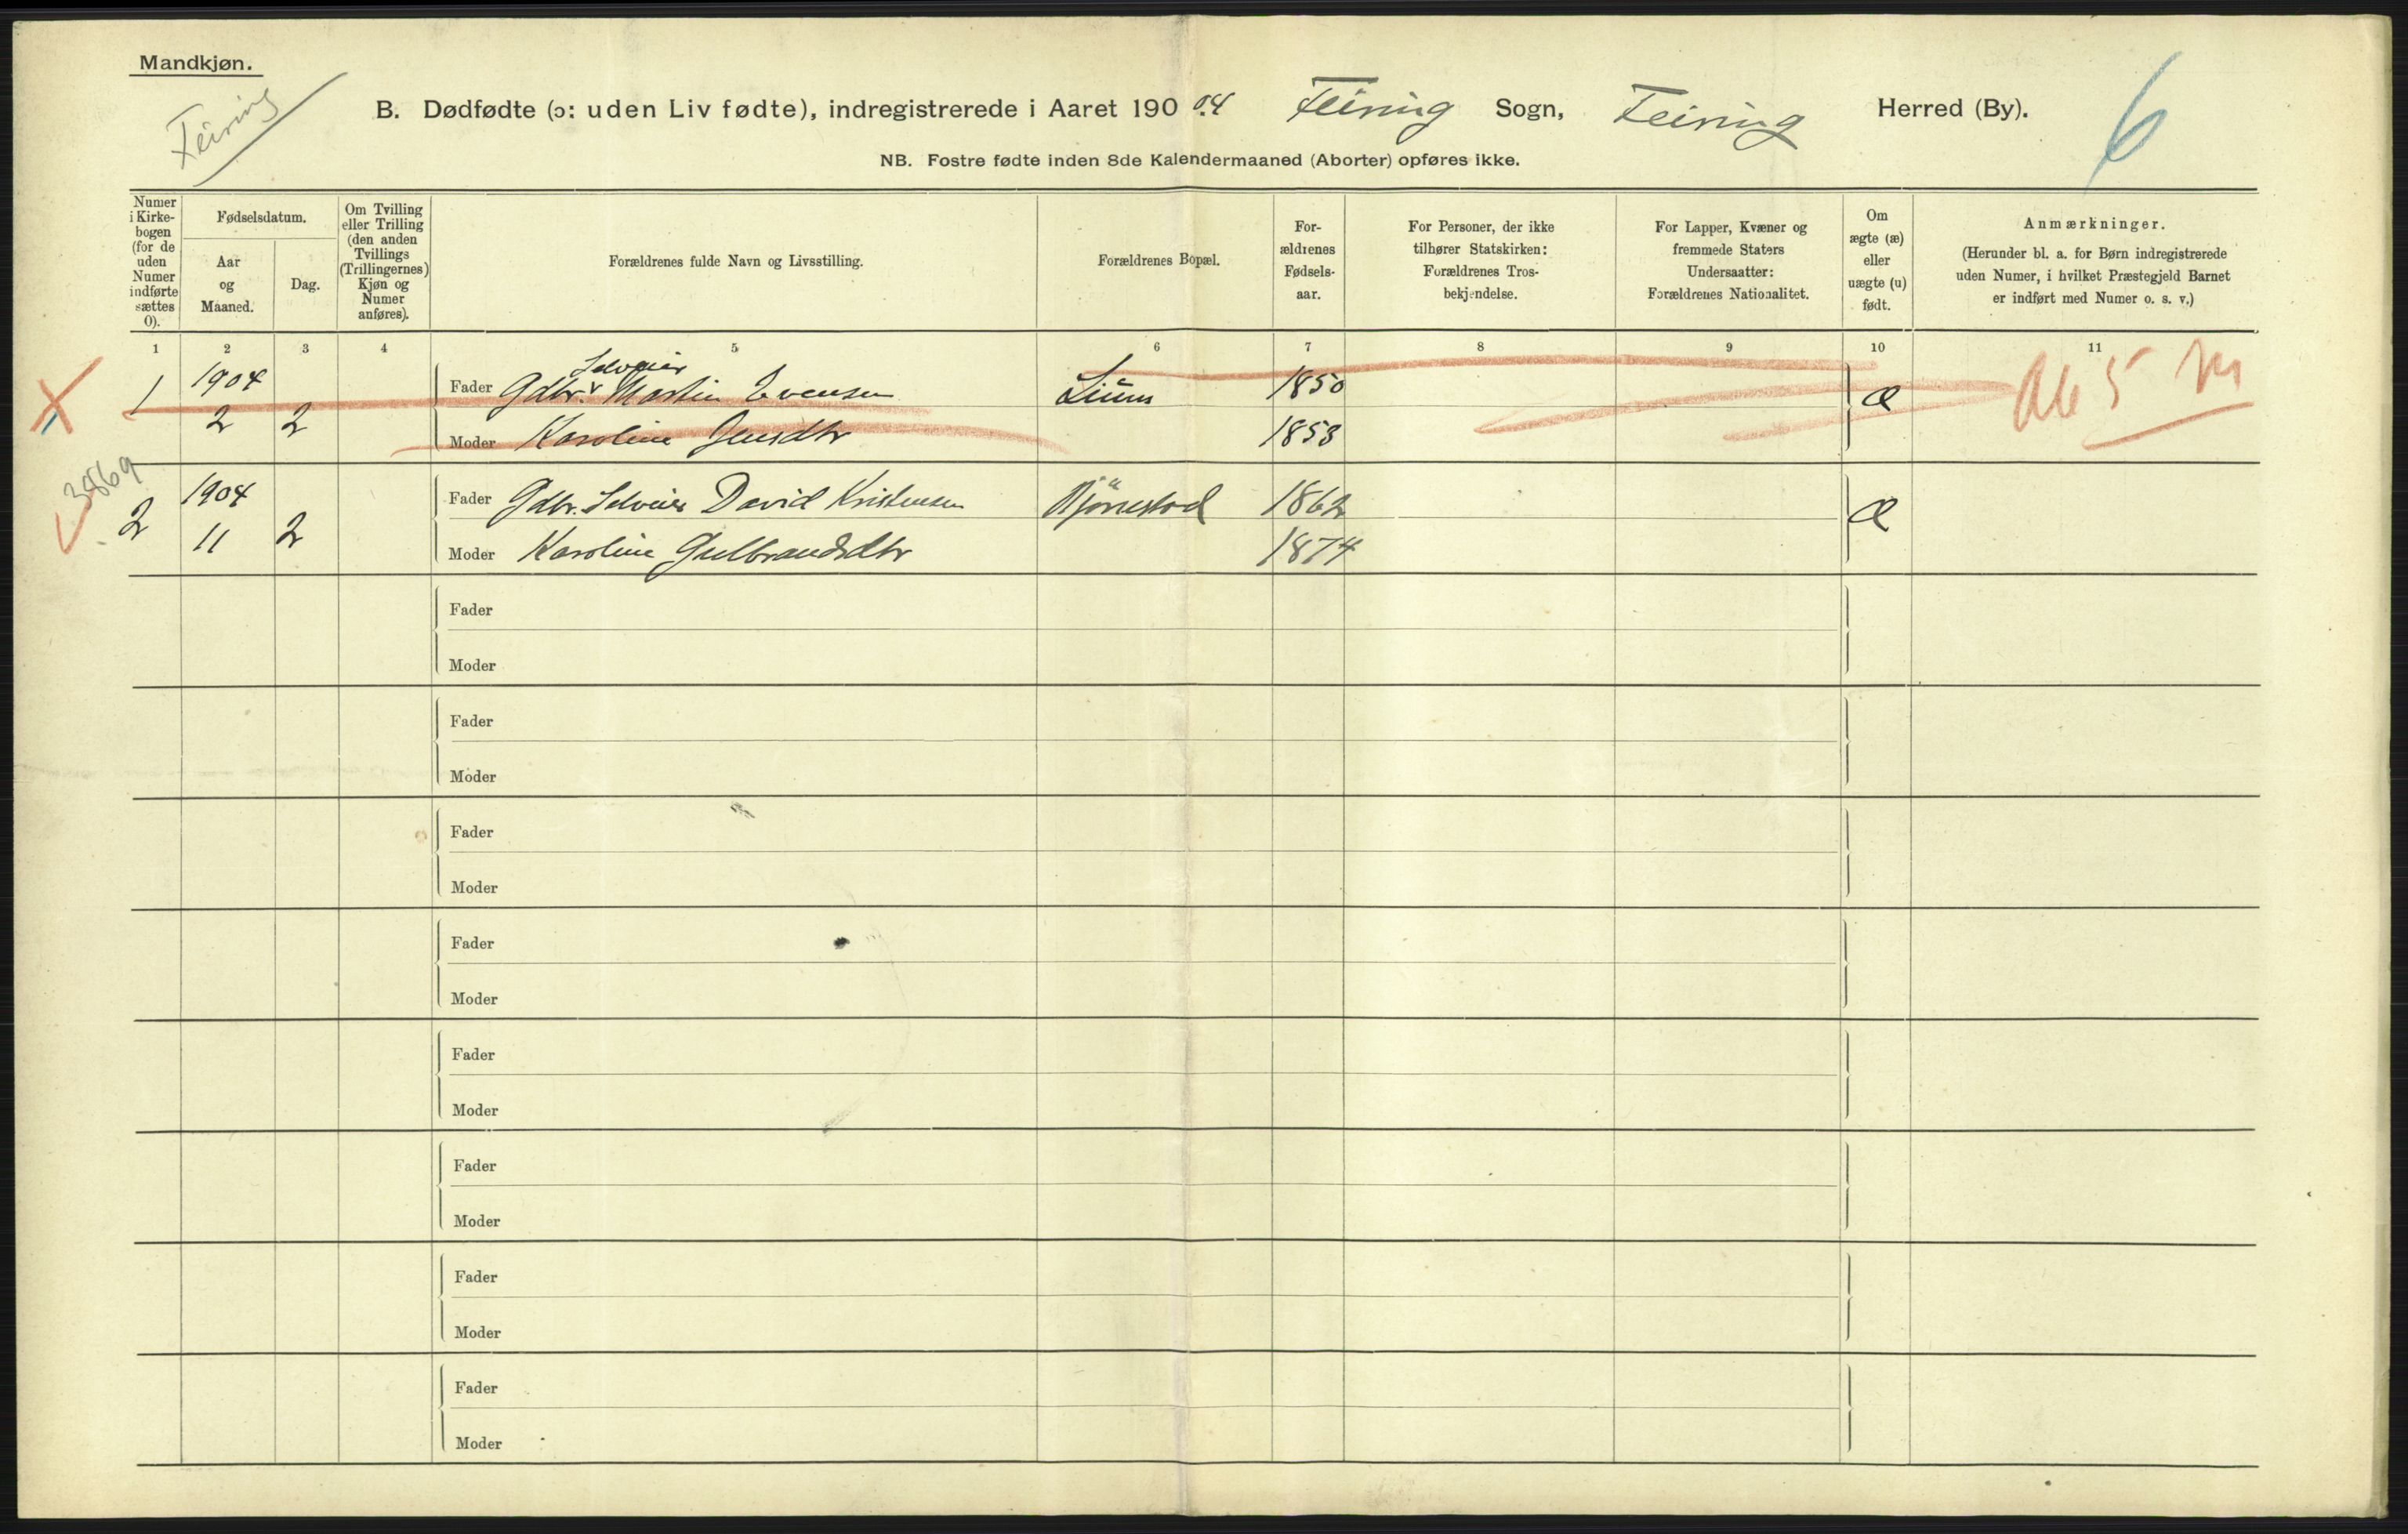 Mandkjøn.
Feiring
B. Dødfødte (ɔ: uden Liv fødte), indregistrerede i Aaret 190 04 Feiring Sogn, Feiring Herred (By). 6
NB. Fostre fødte inden 8de Kalendermaaned (Aborter) opføres ikke.
Numer i Kirke-
bogen
(for de
uden
Numer
indførte
sættes
0).
Fødselsdatum.
Aar
og
Maaned.
Dag.
Om Tvilling
eller Trilling
(den anden
Tvillings
(Trillingernes)
Kjøn og
Numer
anføres).
Forældrenes fulde Navn og Livsstilling.
Forældrenes Bopæl.
For-
ældrenes
Fødsels-
aar.
For Personer, der ikke
tilhører Statskirken:
Forældrenes Tros-
bekjendelse.
For Lapper, Kvæner og
fremmede Staters
Undersaatter:
Forældrenes Nationalitet.
Om
ægte (æ)
eller
uægte (u)
født.
Anmærkninger.
(Herunder bl. a. for Børn indregistrerede
uden Numer, i hvilket Præstegjeld Barnet
er indført med Numer o. s. v.)
1 2 3 4 5 6 7 8 9 10 11
Selveier
1 1904 Fader Gdbr. Martin Evensen 1850 æ
2 2 Moder Karoline 1853
3869
2 1904 Fader Gdbr. Selveier David Kristensen Bjørnestad 1862 æ
11 2 Moder Karoline Gulbrandsdtr 1874
Fader
Moder
Fader
Moder
Fader
Moder
Fader
Moder
Fader
Moder
Fader
Moder
Fader
Moder
Fader
Moder